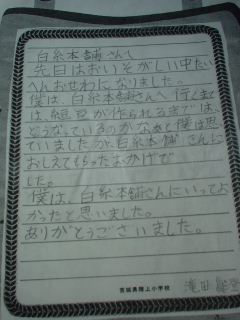 白糸本舗さんへ
先日はおいそがしい中たい
へんおせわになりました。
僕は、白糸本舗さんへ行くまで
は、納豆が作られるまでは、
どうなっているのかなあと僕は思
ていましたが、白糸本舗さんに
おしえてもらったおかげで
した。
僕は、白糸本舗さんにいってよ
かったと思いました。
ありがとうございました。
宮城県陸上小学校
滝田